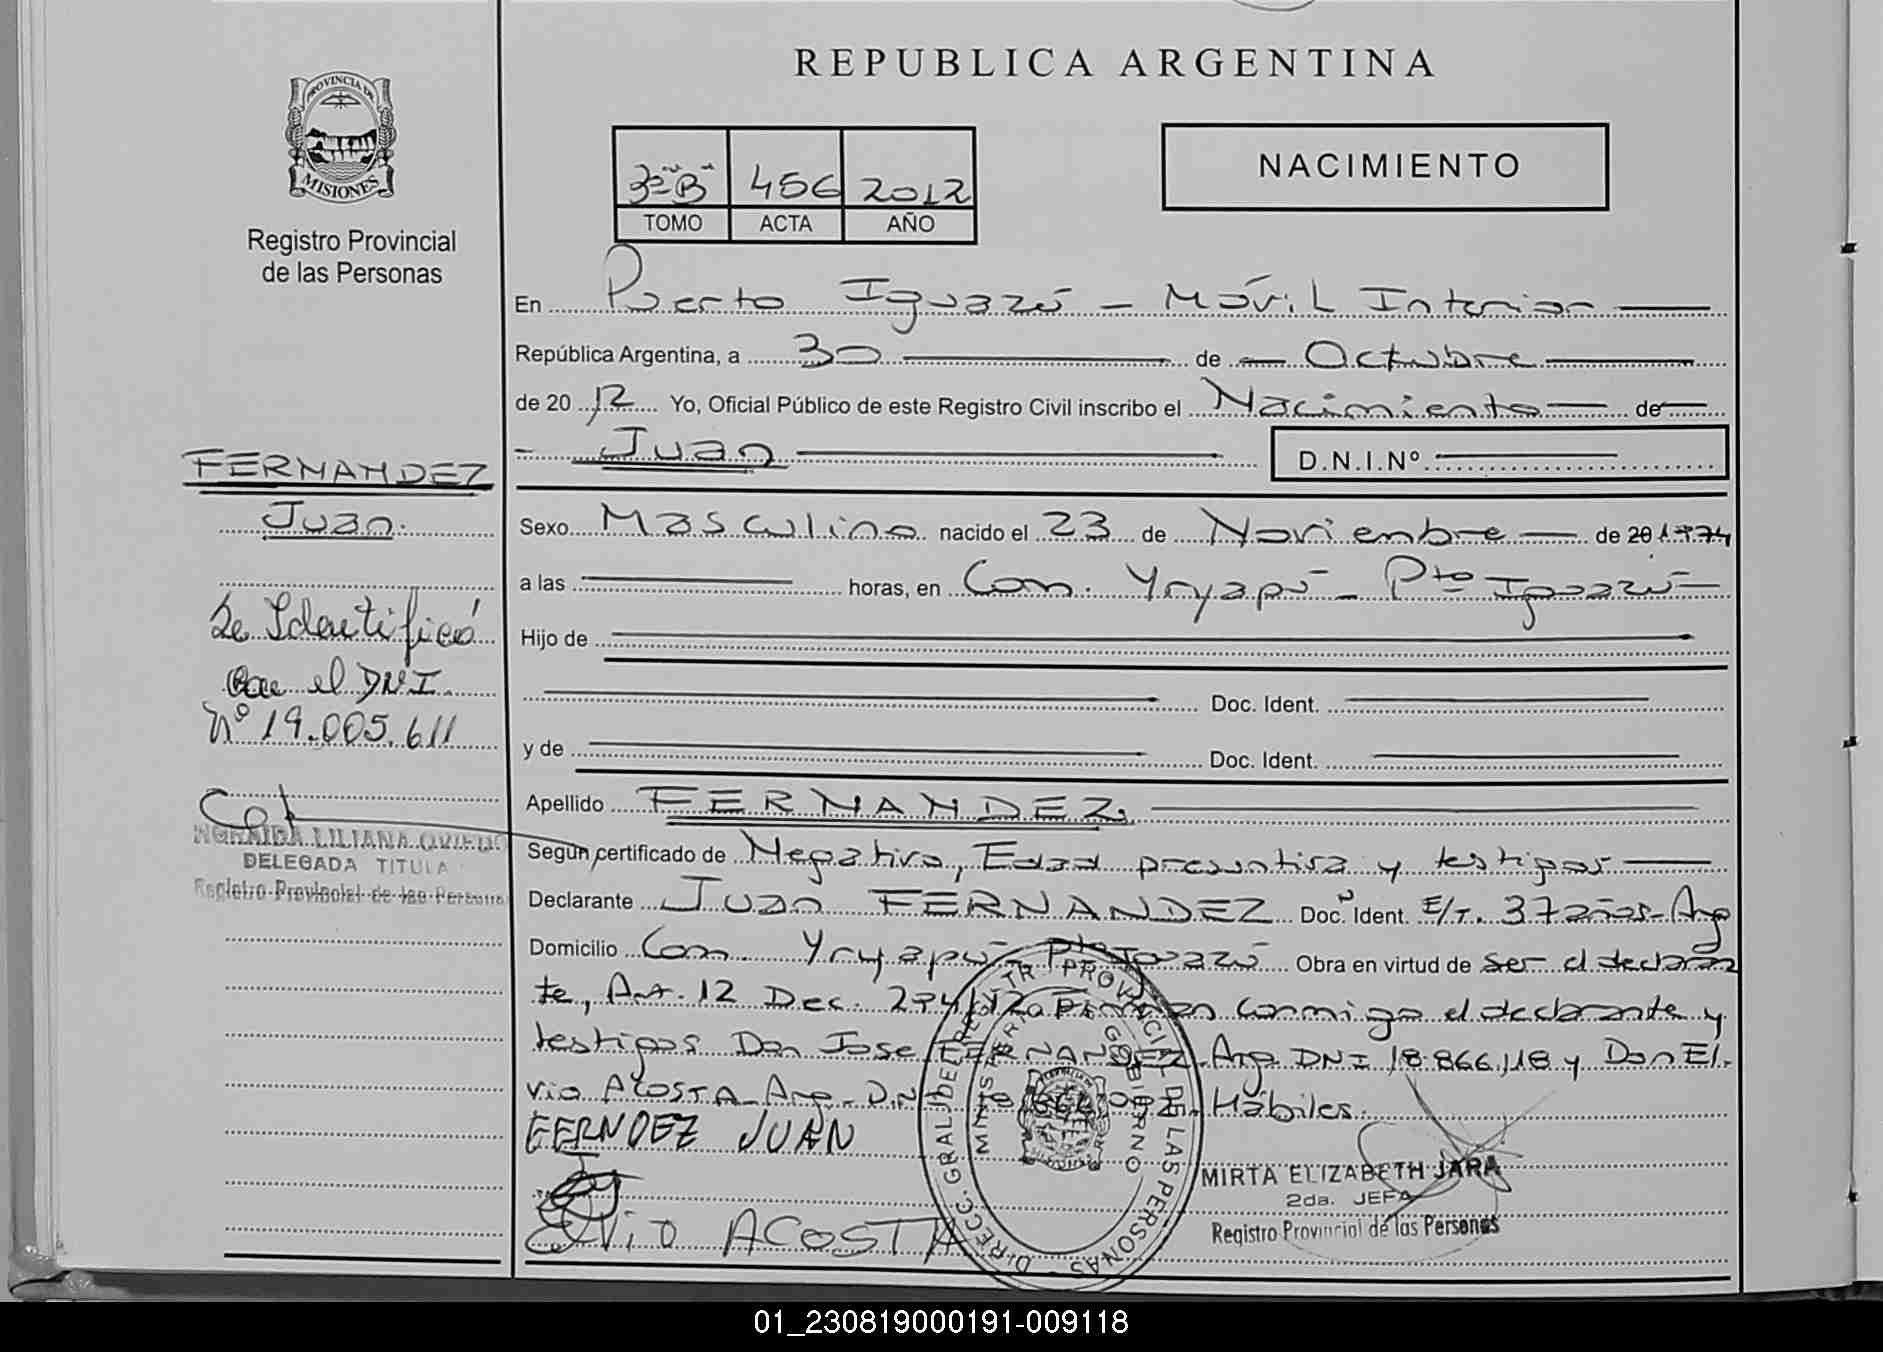 REPUBLICA ARGENTINA
PROVINCIA DE
MISIONES
Registro Provincial
de las Personas
3º "B" 456 2012
TOMO ACTA AÑO
NACIMIENTO
En Puerto Iguazú - Móvil Interior
República Argentina, a 30 de Octubre
de 20 12 Yo, Oficial Público de este Registro Civil inscribo el Nacimiento de
Juan D.N.I.Nº
FERNANDEZ
Juan.
Se Identificó
con el DNI
Nº 19.005.611
NORAIDA LILIANA OVIEDO
DELEGADA TITULA
Registro Provincial de las Personas
Sexo Masculino nacido el 23 de Noviembre de 20 1974
a las horas, en Com. Yryapú - Pto Iguazú
Hijo de
Doc. Ident.
y de Doc. Ident.
Apellido FERNANDEZ.
Según certificado de Negativo, Edad presuntiva y testigos
Declarante Juan FERNANDEZ Doc. Ident. E/T. 37 años - Arg
Domicilio Com. Yryapú - Pto Iguazú Obra en virtud de ser el declaran
te, Art. 12 Dec. Firman conmigo el declarante y
testigos Don Jose FERNANDEZ - Arg. DNI 18.866.118 y Don El-
vio ACOSTA - Arg - D.N Hábiles.
FERNDEZ JUAN
ELViO ACOSTA
DIRECC. GRAL. DEL REGISTR. PROVINCIAL DE LAS PERSONAS
MINISTERIO GOBIERNO
MIRTA ELIZABETH JARA
2da. JEFA
Registro Provincial de las Personas
01_230819000191-009118